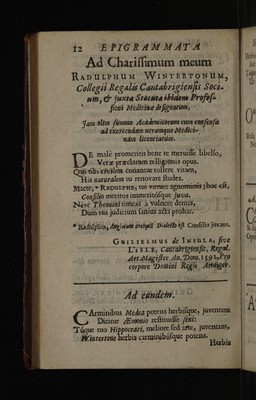 12 EPIGRAMMATA
Ad Charissimum meum
RADULPHUM WINTERTONUM,
Collegii Regalis Cantabrigiensis Soci-
um, & juxta Statuta ibidem Profes-
sioni Medicinæ designatum,
Jam olim summo Academicorum cum consensu
ad exercendam utramque Medici-
nam licentiatum.
DE malè promeritis bene te meruisse libello,
Veræ præclarum relligionis opus.
Qui tibi civilem conantur tollere vitam,
His naturalem tu renovare studes.
Macte, * RADULPHE, tui virtute agnominis; hoc est,
Consilio meritos immeritósque juva.
Néve Thomini timeas à vulnere
Dum tua judicium sanius acta probat.
* Radulphus, Dialecto est Consilio juvans.
GUILIELMUS de INSULA, sive
L'ISLE, Cantabrigiensis, Regal.
Art. Magister An. Dom. 1592. Pro
corpore Domini Regis Armiger.
Ad eundem.
CArminibus Medea potens herbisque, juventam
Dicitur Æsonio restituisse seni:
Túque tuo Hippocrati, meliore sed arte, juventam,
Wintertone herbis carminibúsque potens.
Herbis